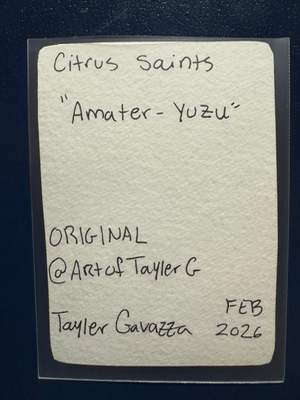 Citrus Saints
"Amater-Yuzu"
ORIGINAL
@ArtofTaylerG
Tayler Gavazza
FEB
2026